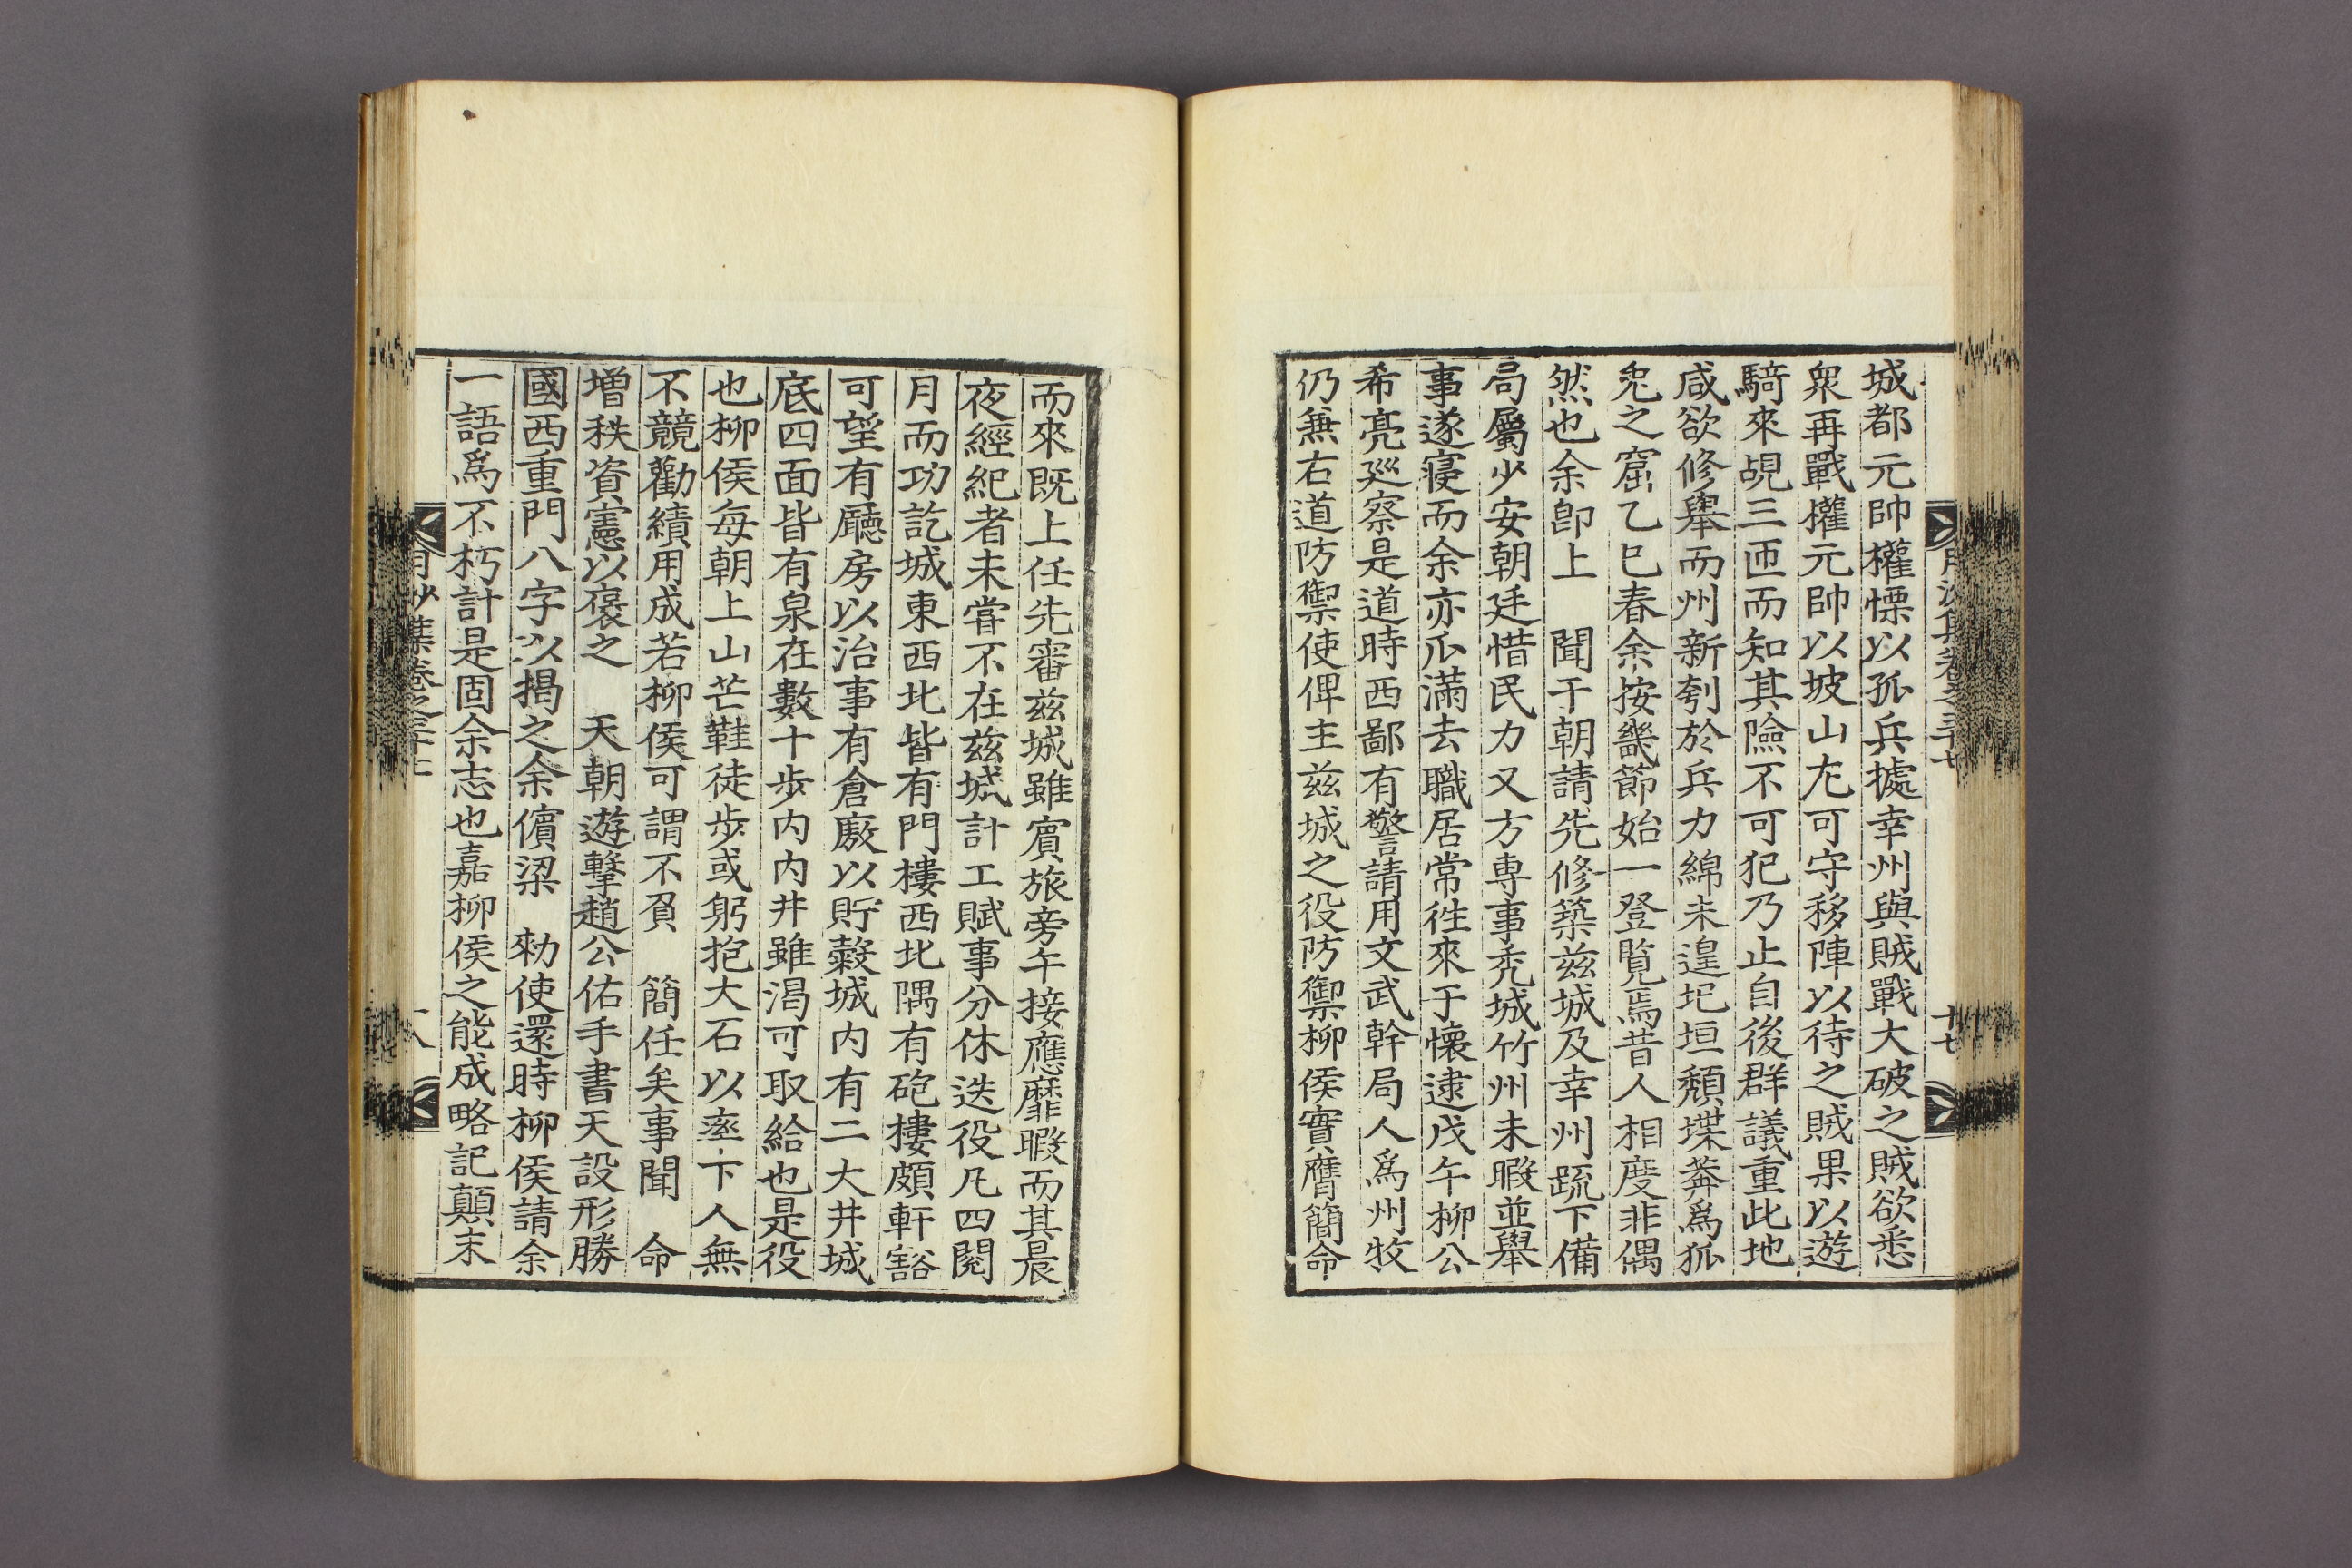 城都元帥權慄以孤兵據幸州與賊戰大破之賊欲悉
衆再戰權元帥以坡山尤可守移陣以待之賊果以遊
騎來覘三匝而知其險不可犯乃止自後群議重此地
咸欲修舉而州新刳於兵力綿未遑圯垣頹堞莽爲狐
兔之窟乙巳春余按畿節始一登覽焉昔人相度非偶
然也余卽上 聞于朝請先修築茲城及幸州疏下備
局屬少安朝廷惜民力又方專事禿城竹州未暇並舉
事遂寢而余亦瓜滿去職居常徃來于懷逮戊午柳公
希亮廵察是道時西鄙有警請用文武幹局人爲州牧
仍兼右道防禦使俾主茲城之役防禦柳侯實膺簡命
月沙集卷之三十七 十七
而來旣上任先審茲城雖賓旅旁午接應靡暇而其晨
夜經紀者未嘗不在茲城計工賦事分休迭役凡四閱
月而功訖城東西北皆有門樓西北隅有砲樓頗軒豁
可望有廳房以治事有倉廒以貯糓城內有二大井城
底四面皆有泉在數十步內內井雖渴可取給也是役
也柳侯每朝上山芒鞋徒步或躬抱大石以率下人無
不競勸績用成若柳侯可謂不負 簡任矣事聞 命
增秩資憲以褒之 天朝遊擊趙公佑手書天設形勝
國西重門八字以揭之余儐梁 勑使還時柳侯請余
一語爲不朽計是固余志也嘉柳侯之能成略記顚末
月沙集卷之三十七 十八